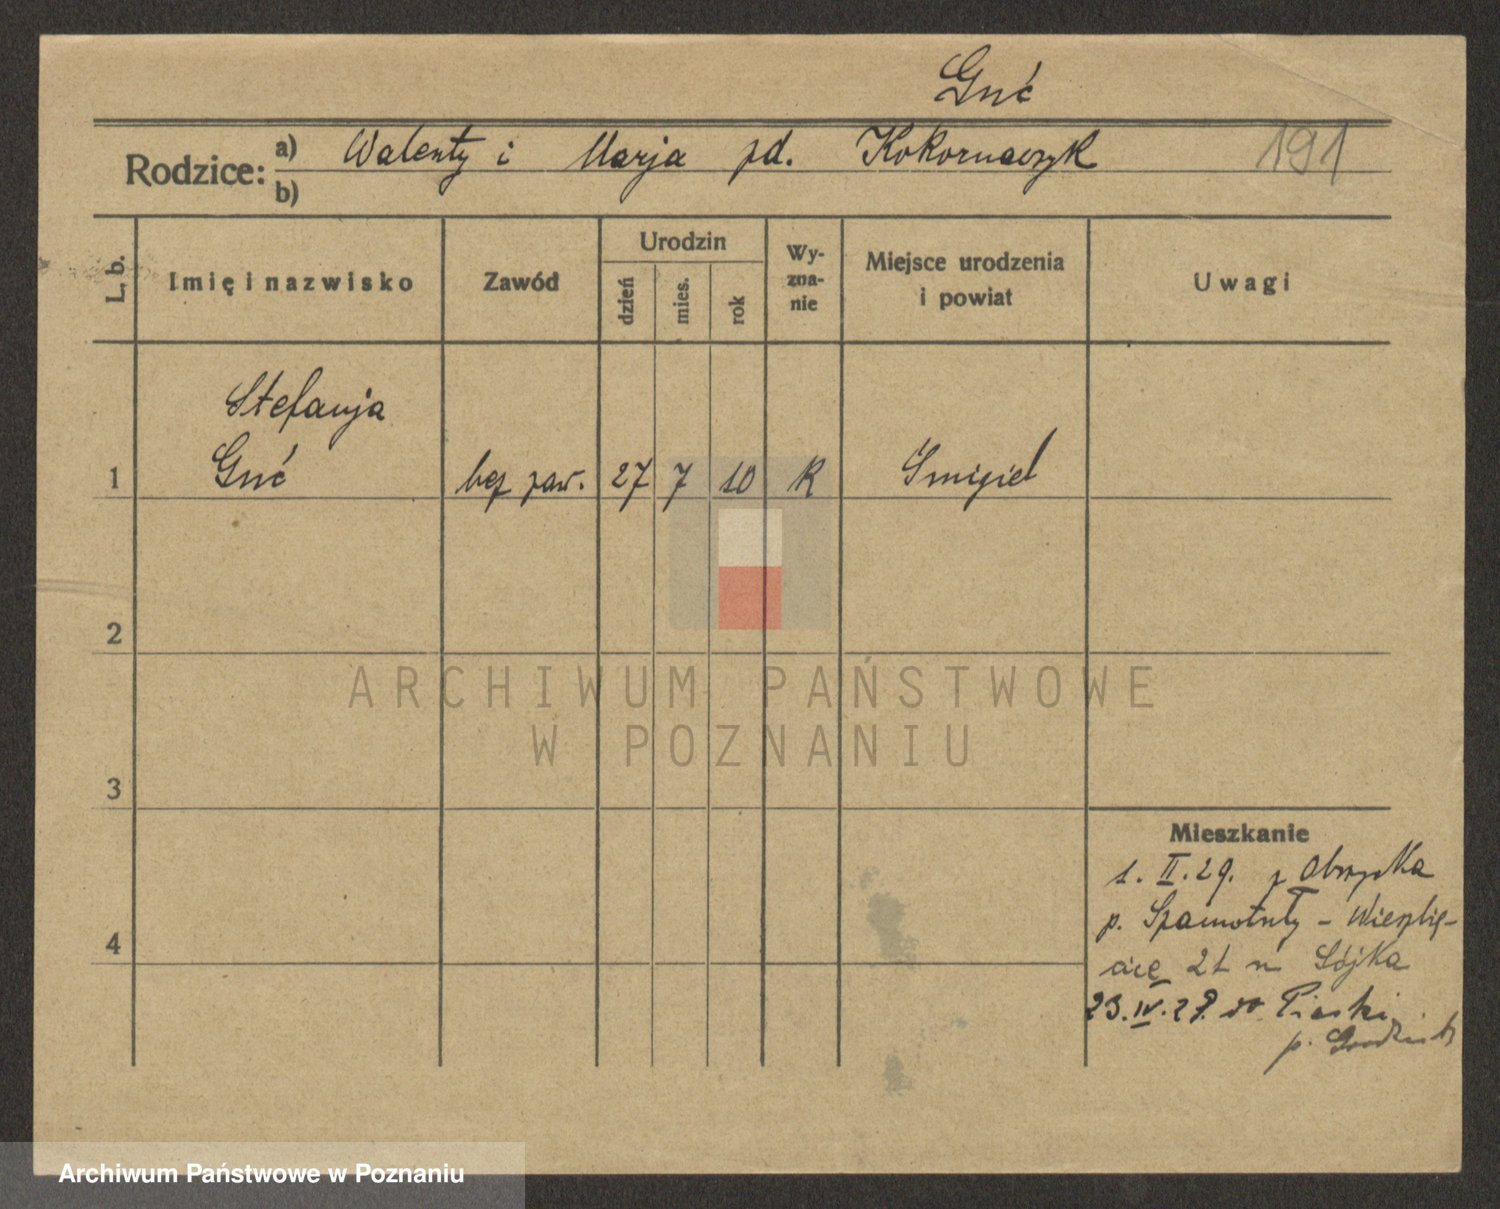 Gnć
Rodzice: a) Walenty i Marja zd. Kokornaczyk 191
b)
L. b.
Imię i nazwisko
Zawód
Urodzin
dzień
mies.
rok
Wy-
zna-
nie
Miejsce urodzenia
i powiat
Uwagi
Stefanja
1 Gnć bez zaw. 27 7 10 K Śmigiel
2
ARCHIWUM PAŃSTWOWE
W POZNANIU
3
Mieszkanie
1. II. 29. z Obrzycka
p. Szamotuły - Wierzbię-
4
cice 21 Sójka
23. IV. 29. do Piaski
p.
Archiwum Państwowe w Poznaniu